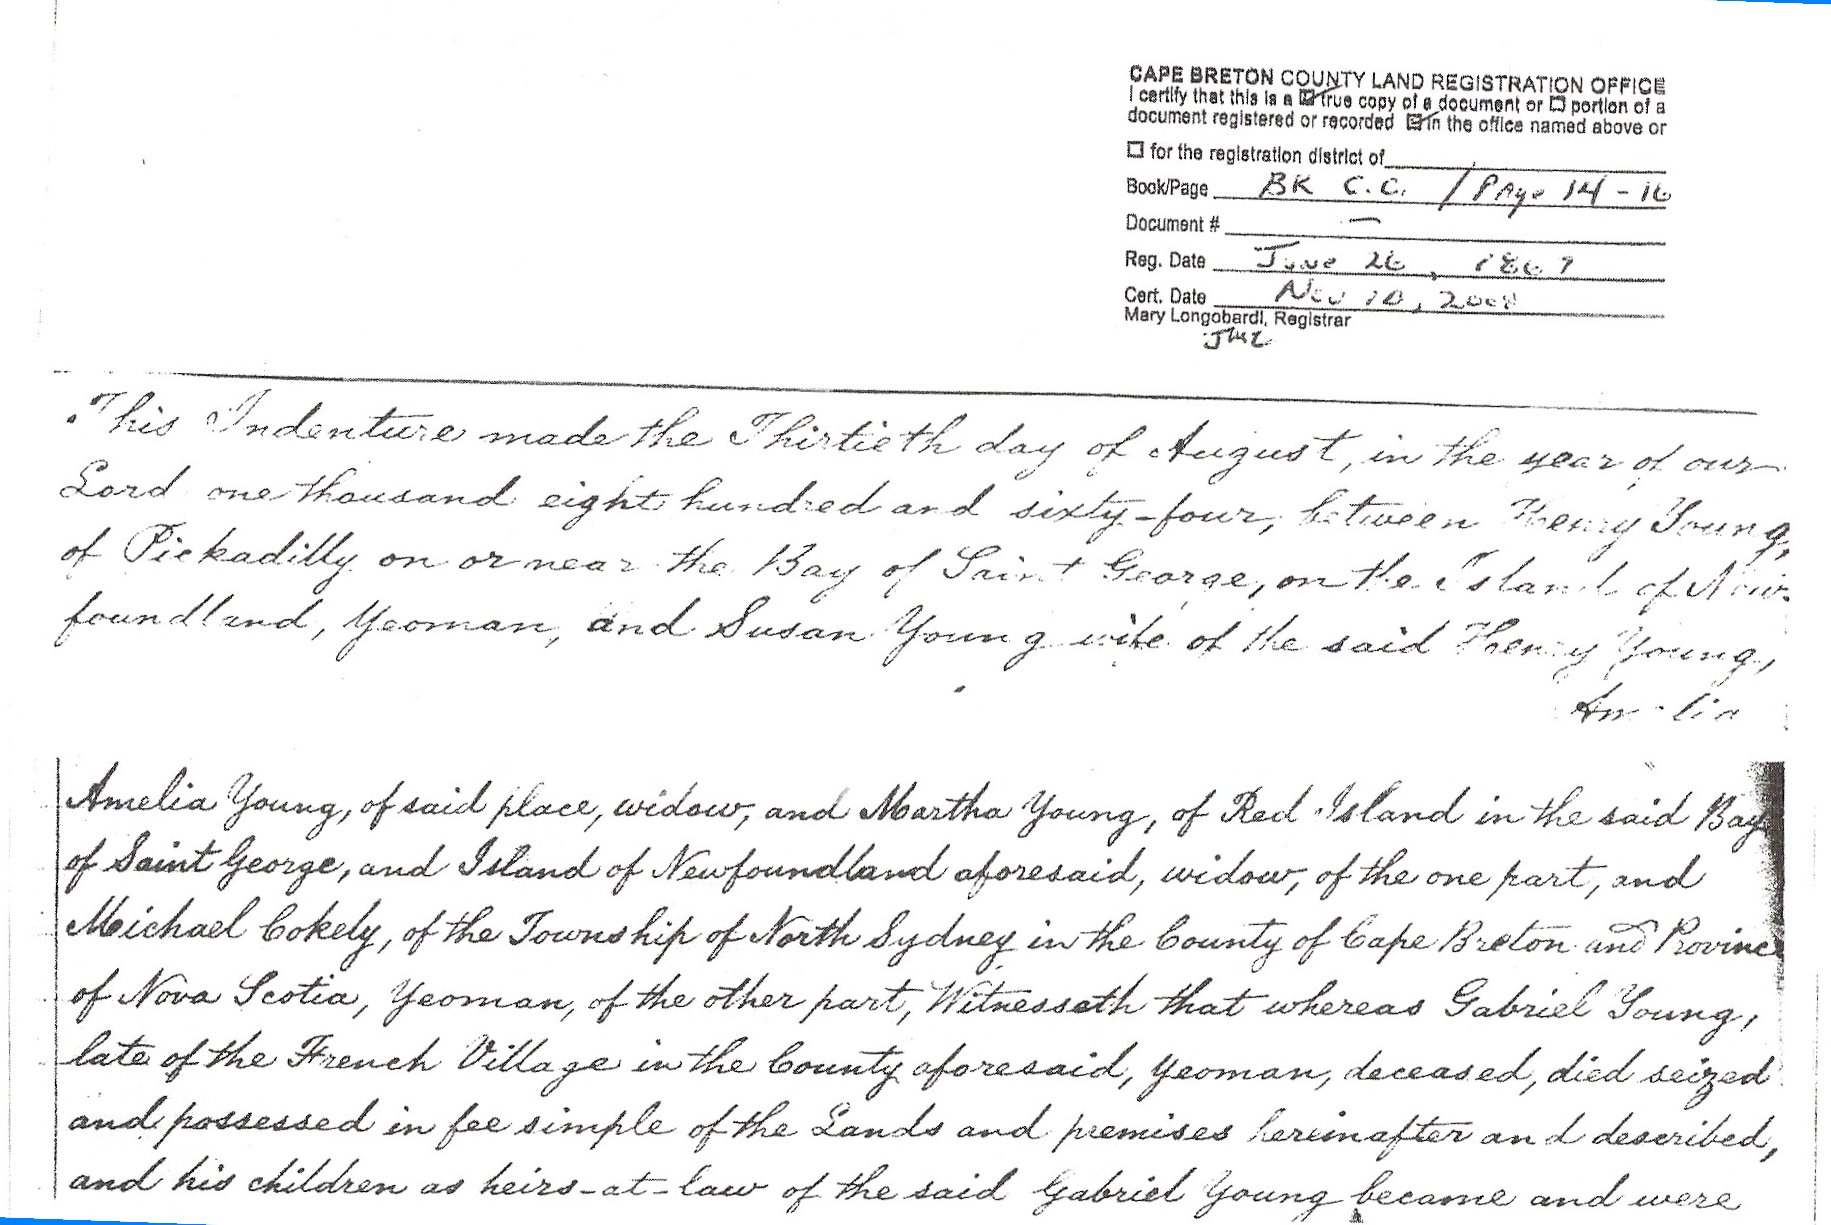 CAPE BRETON COUNTY LAND REGISTRATION OFFICE
I certify that this is a ☑ true copy of a document or ☐ portion of a
document registered or recorded ☑ in the office named above or
☐ for the registration district of
Book/Page BK C.C. / Page 14-16
Document # —
Reg. Date June 26, 1867
Cert. Date Nov 10, 2008
Mary Longobardi, Registrar
This Indenture made the Thirtieth day of August, in the year of our
Lord one thousand eight hundred and sixty-four, between Henry Young,
of Pickadilly on or near the Bay of Saint George, on the Island of New-
foundland, Yeoman, and Susan Young wife of the said Henry Young,
Amelia
Amelia Young, of said place, widow, and Martha Young, of Red Island in the said Bay
of Saint George, and Island of Newfoundland aforesaid, widow, of the one part, and
Michael Cokely, of the Township of North Sydney in the County of Cape Breton and Province
of Nova Scotia, Yeoman, of the other part, Witnesseth that whereas Gabriel Young,
late of the French Village in the County aforesaid, Yeoman, deceased, died seized
and possessed in fee simple of the Lands and premises hereinafter and described,
and his children as heirs-at-law of the said Gabriel Young became and were